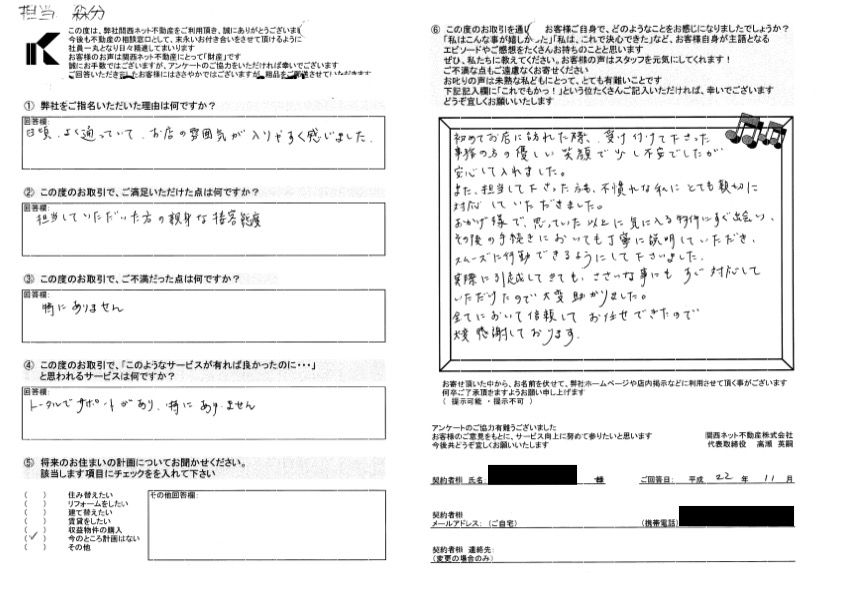 担当
この度は、弊社関西ネット不動産をご利用頂き、誠にありがとうございます
今後も不動産の相談窓口として、末永いお付き合いをさせて頂けるように
社員一丸となり日々精進してまいります
お客様のお声は関西ネット不動産にとって「財産」です
誠にお手数ではございますが、アンケートのご協力をいただければ幸いでございます
ご回答いただきましたお客様にはささやかではございますが、粗品をご郵送させていただきます
① 弊社をご指名いただいた理由は何ですか？
回答欄:
日頃、よく通っていて、お店の雰囲気が入りやすく感じました。
② この度のお取引で、ご満足いただけた点は何ですか？
回答欄:
担当していただいた方の親身な接客態度
③ この度のお取引で、ご不満だった点は何ですか？
回答欄:
特にありません
④ この度のお取引で、「このようなサービスが有れば良かったのに・・・」
と思われるサービスは何ですか？
回答欄:
トータルでサポートがあり、特にありません
⑤ 将来のお住まいの計画についてお聞かせください。
該当します項目にチェックをを入れて下さい
( ) 住み替えたい
( ) リフォームをしたい
( ) 建て替えたい
( ) 賃貸をしたい
( ) 収益物件の購入
( ✓ ) 今のところ計画はない
( ) その他
その他回答欄:
⑥ この度のお取引を通し お客様ご自身で、どのようなことをお感じになりましたでしょうか？
「私はこんな事が嬉しかった」「私は、これで決心できた」など、お客様自身が主語となる
エピソードやご感想をたくさんお持ちのことと思います
ぜひ、私たちに教えてください。お客様の声はスタッフを元気にしてくれます！
ご不満な点もご遠慮なくお寄せください
お叱りの声は未熟な私どもにとって、とても有難いことです
下記記入欄に「これでもかっ！」という位たくさんご記入いただければ、幸いでございます
どうぞ宜しくお願いいたします
初めてお店に訪れた際、受け付けて下さった
事務の方の優しい笑顔で少し不安でしたが
安心して入れました。
また、担当して下さった方も、不慣れな私にとても親切に
対応していただきました。
おかげ様で、思っていた以上に気に入る物件にすぐ出会い、
その後の手続きにおいても丁寧に説明していただき、
スムーズに行動できるようにして下さいました。
実際に引越してきても、ささいな事にもすぐ対応して
いただけたので大変助かりました。
全てにおいて信頼してお任せできたので
大変感謝しております。
お寄せ頂いた中から、お名前を伏せて、弊社ホームページや店内掲示などに利用させて頂く事がございます
何卒ご了承頂きますようお願い申し上げます
（ 提示可能 ・ 提示不可 ）
アンケートのご協力有難うございました
お客様のご意見をもとに、サービス向上に努めて参りたいと思います
今後共どうぞ宜しくお願いいたします
関西ネット不動産株式会社
代表取締役 高瀬 英嗣
契約者様 氏名: 様 ご回答日: 平成 22 年 11 月
契約者様
メールアドレス: （ご自宅） (携帯電話)
契約者様 連絡先:
(変更の場合のみ)